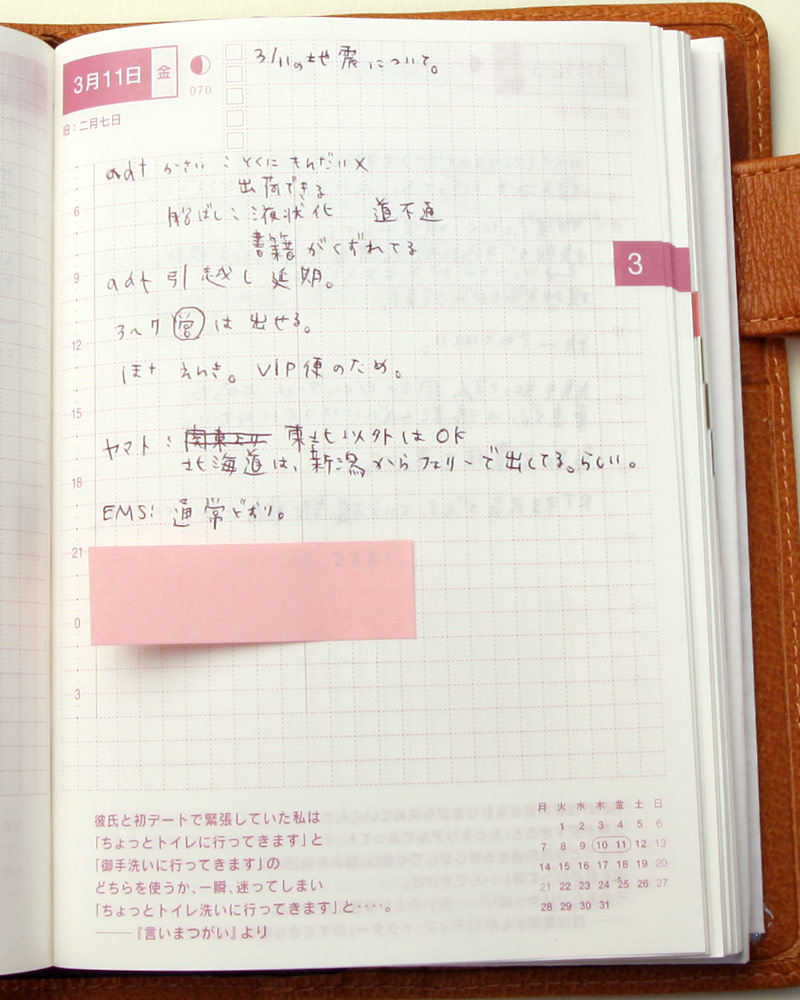 3月11日 金
070
旧:二月七日
3/11の地震について。
adt かさい:とくにもんだい×
出荷できる
船ばし:液状化 道不通
書籍がくずれてる
adt 引越し延期。
3〜7 営 は出せる。
えんき。VIP便のため。
ヤマト: 関東より 東北以外はOK
北海道は、新潟からフェリーで出してる。らしい。
EMS: 通常どおり。
6
9
12
15
18
21
0
3
3
彼氏と初デートで緊張していた私は
「ちょっとトイレに行ってきます」と
「御手洗いに行ってきます」の
どちらを使うか、一瞬、迷ってしまい
「ちょっとトイレ洗いに行ってきます」と‥‥。
——『言いまつがい』より
月 火 水 木 金 土 日
1 2 3 4 5 6
7 8 9 10 11 12 13
14 15 16 17 18 19 20
21 22 23 24 25 26 27
28 29 30 31